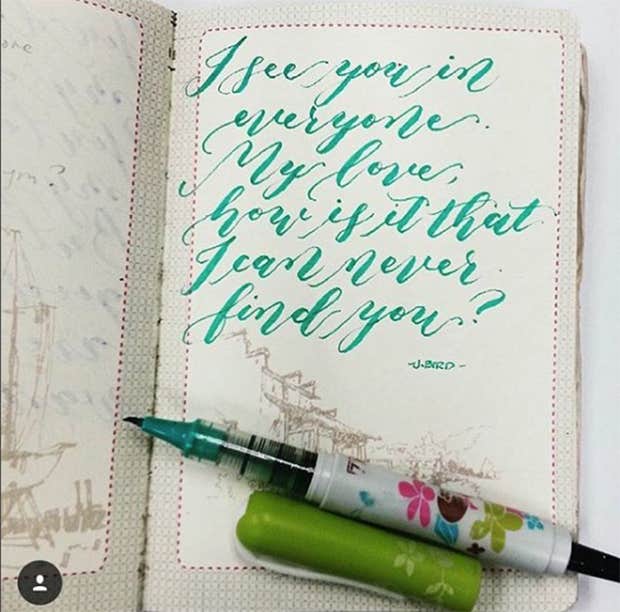 I see you in
everyone.
My love,
how is it that
I can never
find you?
-J.BIRD-